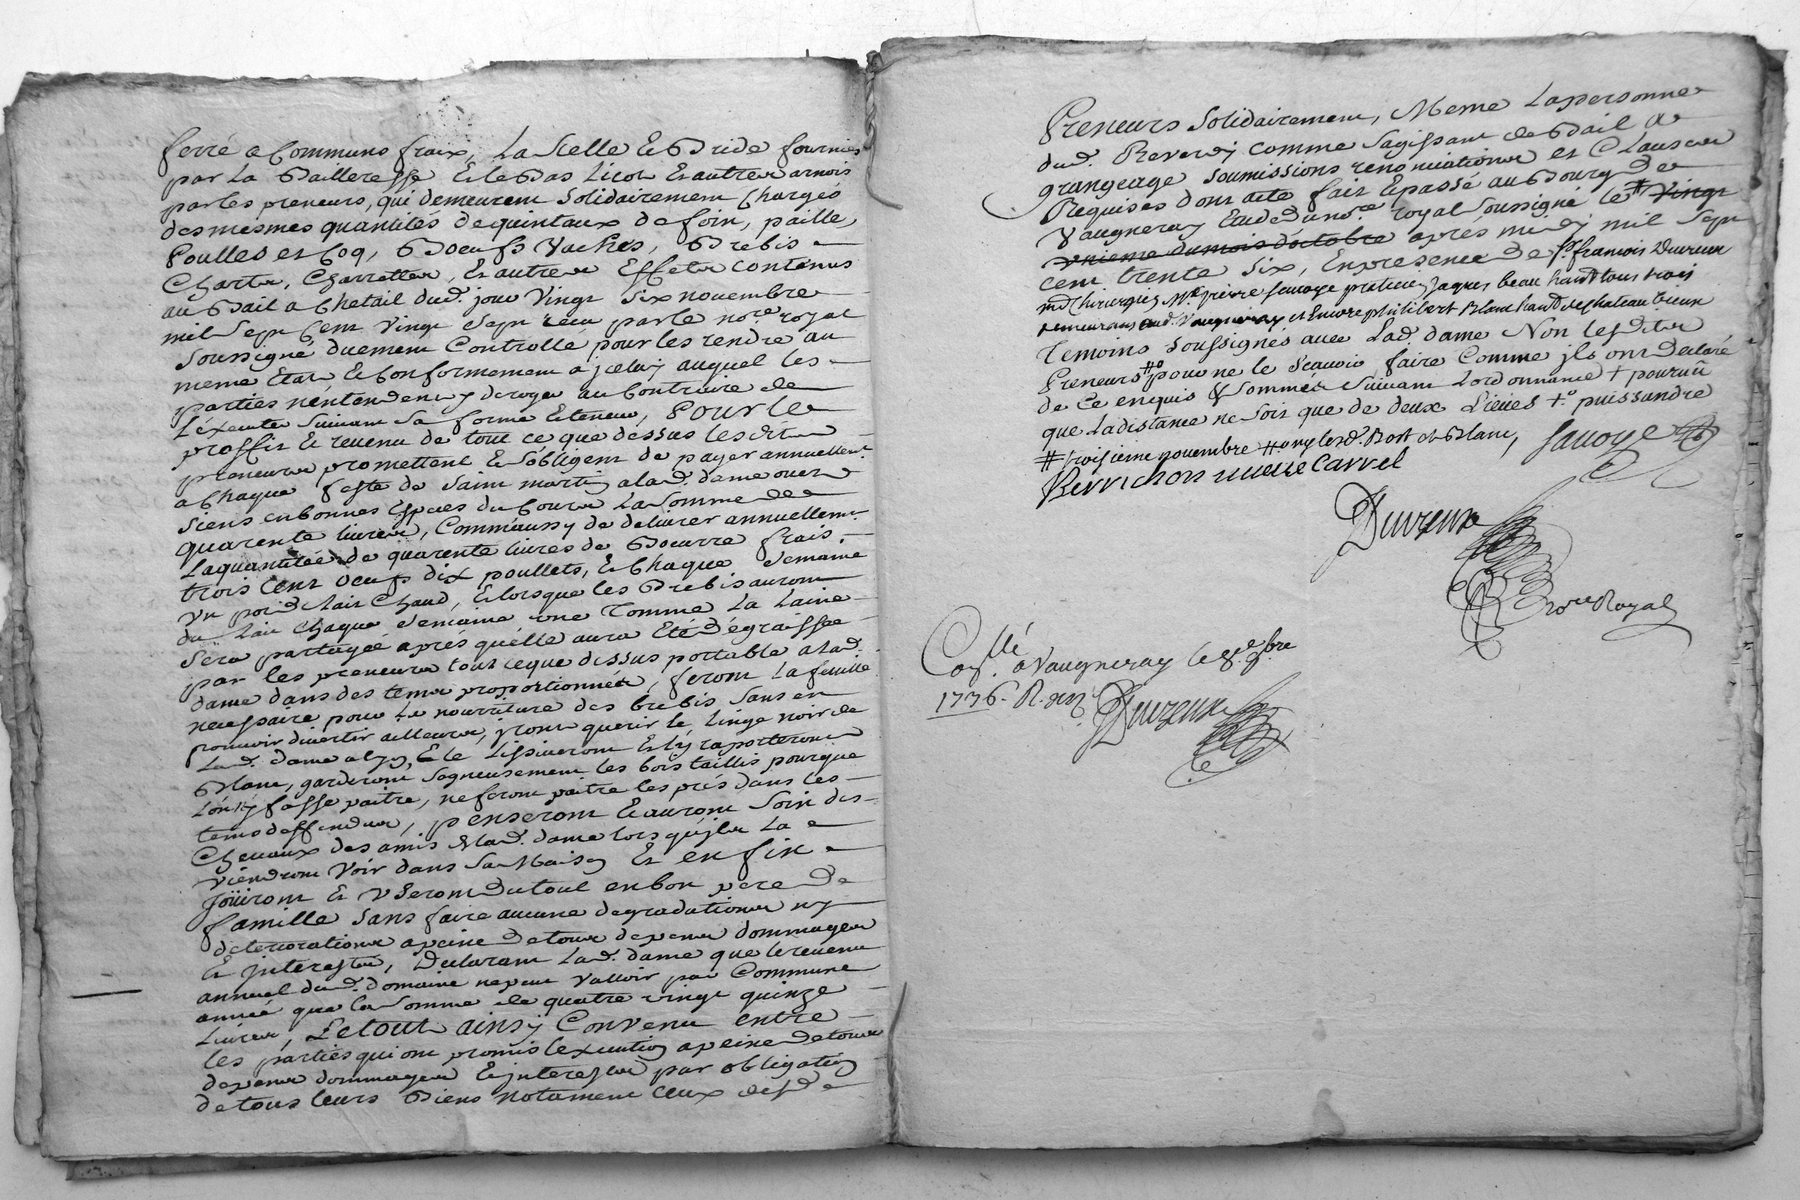 ferré a Communs fraix, La Selle et Bride fournies
par La Bailleresse Et le Bas Licol Et autres arnois
par les preneurs, qui demeurent solidairement Chargés
des mesmes quantités de quintaux de foin, paille,
Poulles et Coq, Boeufs Vaches, Brebis
Charts, Charrettes, Et autres Effets contenus
au Bail a Chetail dud. jour Vingt Six novembre
mil Sept Cent Vingt Sept recu par le no.re royal
Soussigné duement Controllé pour les rendre au
meme Etat, Et Conformement a jceluy auquel les
parties nentendent y deroger au Contraire de
L'éxecuter Suivant Sa forme Et teneur, Pour le
proffit Et revenu de tout ce que dessus lesdits
preneurs promettent Et Sóbligent de payer annuellem.t
a Chaque feste de Saint martin a lad. dame ou es
Siens en bonnes Especes du Cours La Somme de
quarente livres, Comm'aussy de delivrer annuellem.t
La quantitée de quarente livres de Boeurre frais,
trois Cent Oeufs dix poullets, Et Chaque Semaine
vn pot de lait Chaud, Et lorsque les Brebis auront
du lait Chaque Semaine une Tomme La Laine
Sera partagée aprés qu'elle aura Eté dégraissée
par les preneurs tout ce que dessus portable a lad.
dame dans des tems proportionnés, feront La feuille
necessaire pour La nourriture des brebis Sans en
pouvoir divertir ailleurs, jront querir le linge noir de
lad. dame a Lyon, Et le Lissiveront Et ly raporteront
Blanc, garderont Sogneusement les bois taillis pourque
L'on ny fasse paitre, ne feront paitre les prés dans les
tems deffendus, penseront Et auront Soin des
Chevaux des amis de lad. dame lors qu'jls La
Viendront Voir dans Sa Maison Et enfin
Joüiront Et vseront du tout en bon pere de
famille Sans faire aucune degradations ny
deteriorations a peine de tous depens dommages
Et jnterests, Declarant Lad. dame que le revenu
annuel dud. domaine ne peut Valloir par Commune
année que la Somme de quatre vingt quinze
Livres, Le tout ainsy Convenu entre
les parties qui ont promis l'exécution a peine de tous
depens dommages Et jnterests par obligation
de tous leurs Biens notament Ceux desd.
Preneurs Solidairement, Meme La personne
dud. Reverdy comme Sagissant de Bail a
grangeage Soumissions renonciations et Clauses
Requises dont acte fait Et passé au Bourg de
Vaugneray Etude du no.re royal Soussigné le # Vingt
vnieme du mois d'octobre aprés midy mil Sept
cent trente Six, En presence de S.r françois Duvreux
m.d Chirurgien, M.re pierre Savoye praticien, Jaques beau hab.t tous trois
demeurans aud. Vaugneray et Encore philibert Blanc hab.t de Chateau vieux
Temoins Soussignés avec Lad. dame Non lesdits
Preneurs ## pour ne le Scavoir faire Comme jls ont Declaré
de Ce enquis & Sommés Suivant Lordonnance + pourvu
que La distance ne Soit que de deux Lieues +.o puissandre
# troisieme novembre ## ny lesd. Bost et Blanc, Savoye
Berrichon Carrel
Duvreux
no.re Royal
Con.llé a Vaugneray le 8.e 9.bre
1736. R.
Duvreux